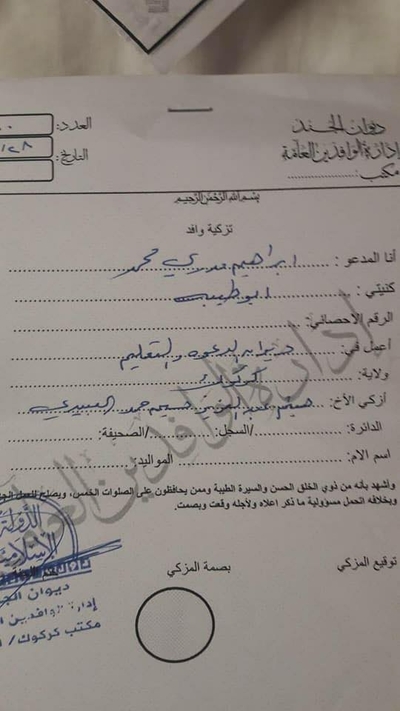 ديوان الجند
إدارة الوافدين العامة
مكتب: ....................
العدد:
التاريخ: ١٢٨/
بسم الله الرحمن الرحيم
تزكية وافد
أنا المدعو : ابراهيم بدري محمد
كنيتي : ابو طيب
الرقم الأحصائي :
اعمل في: ديوان الدعوة والتعليم
ولاية: كركوك
أزكي الأخ:
الدائرة: /السجل: /الصحيفة:
اسم الام: المواليد:
واشهد بأنه من ذوي الخلق الحسن والسيرة الطيبة وممن يحافظون على الصلوات الخمس، ويصلح للعمل
وبخلافه اتحمل مسؤولية ما ذكر اعلاه ولأجله وقعت وبصمت.
توقيع المزكي
بصمة المزكي
الدولة
الإسلامية
ديوان
إدارة الوافدين
مكتب كركوك/
إدارة الوافدين العامة